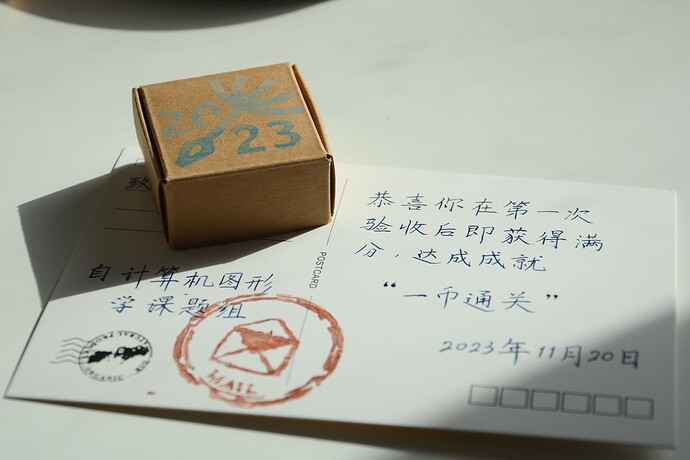 2023
致
恭喜你在第一次
验收后即获得满
分，达成成就
“一币通关”
2023年11月20日
自计算机图形
学课题组
POSTCARD
MAIL
ORGANIC